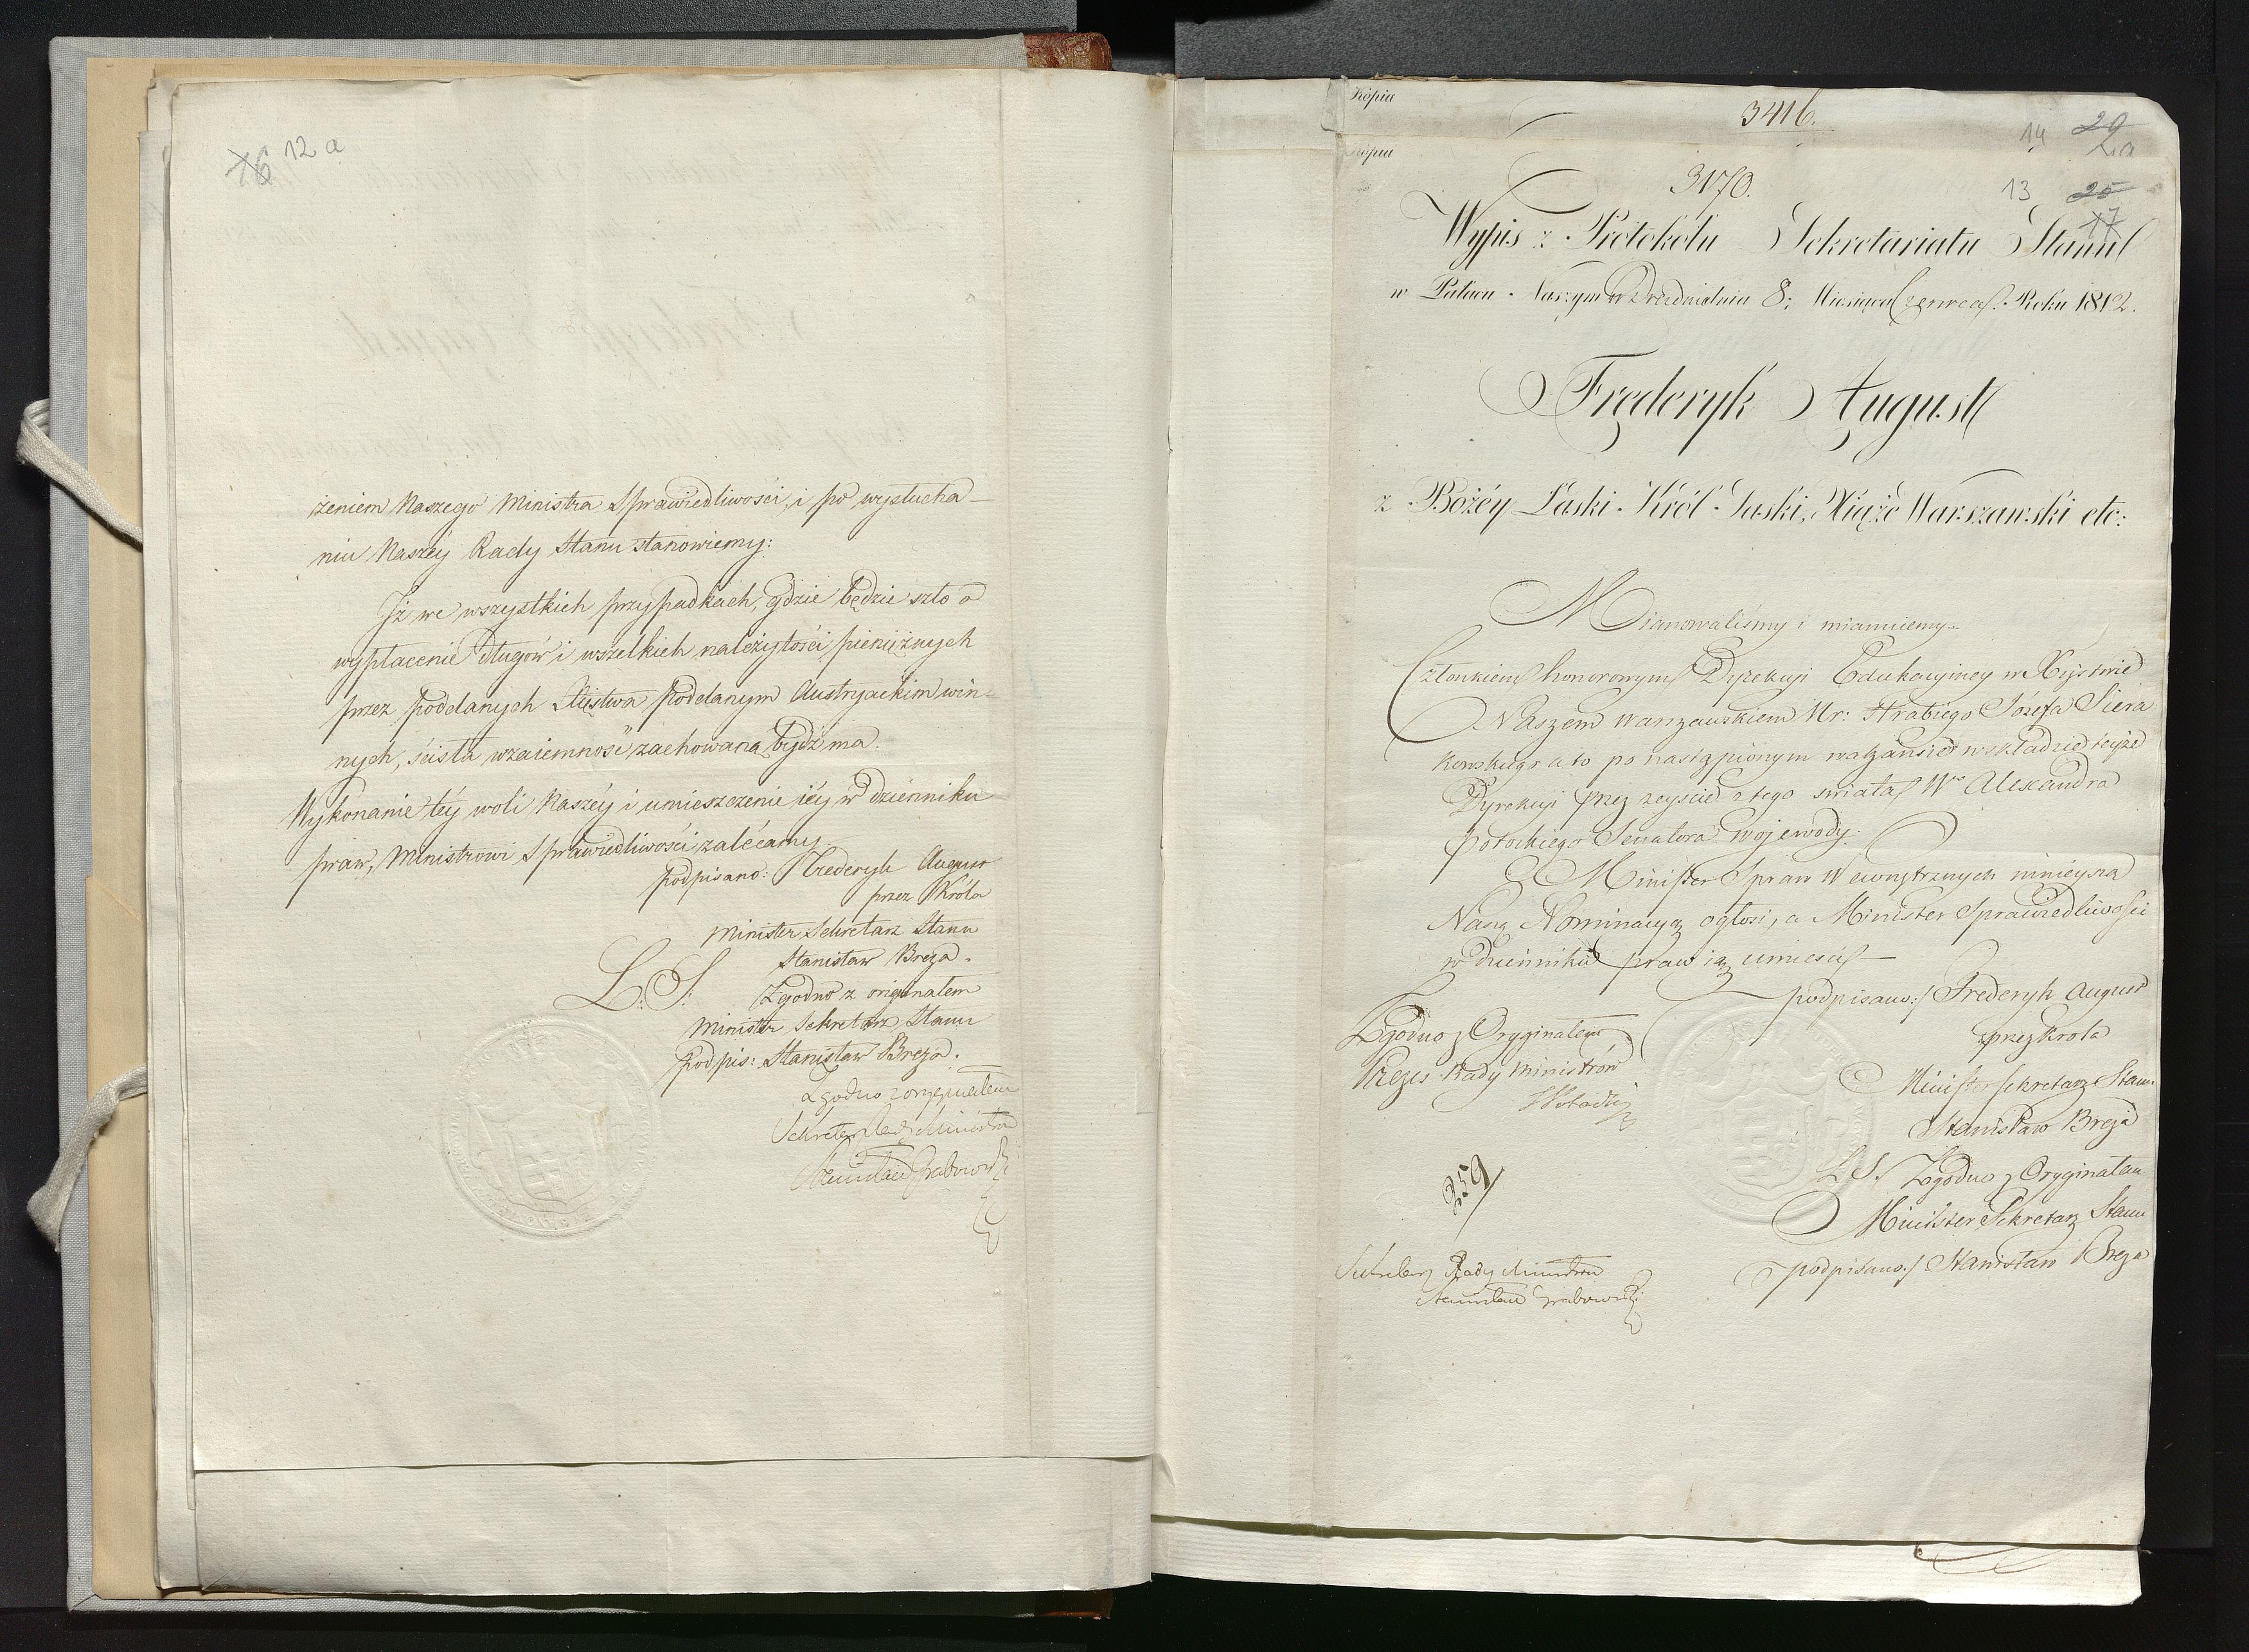 16 12 a
żeniem Naszego Ministra Sprawiedliwości, i po wysłucha-
niu Naszéy Rady Stanu stanowiemy:
Iż we wszystkich przypadkach, gdzie będzie szło o
wypłacenie długów i wszelkich należytości pieniężnych
przez poddanych Xięstwa poddanym Austryackim win-
nych, ścisła wzaiemność zachowaną bydź ma.
Wykonanie téy woli Naszéy i umieszczenie iéy w dzienniku
praw, Ministrowi Sprawiedliwości zalécamy.
podpisano: Frederyk August
przez Króla
Minister Sekretarz Stanu
Stanisław Breza.
L: S: Zgodno z originałem
Minister Sekretarz Stanu
podpis: Stanisław Breza.
Zgodno z oryginałem
Sekretarz Rady Ministrów
Stanisław Grabowski
Kopia
3416.
14 29
Kopia
3170.
13 25
17
Wypis z Protokółu Sekretariatu Stanu
w Pałacu Naszym w Dreźnie dnia 8; Miesiąca Czerwca Roku 1812.
Frederyk August
z Bożéy Łaski Król Saski, Xiążę Warszawski etc:
Mianowaliśmy i mianuiemy
Członkiem honorowym Dyrekcyi Edukacyiney w Xięstwie
Naszem Warszawskiem Ur: Hrabiego Józefa Siera
kowskiego a to po nastąpionym wakansie w składzie teyże
Dyrekcyi przez zeyście z tego świata W° Alexandra
Potockiego Senatora Wojewody.
Minister Spraw Wewnętrznych ninieyszą
Naszą Nominacyą ogłosi, a Minister Sprawiedliwości
w dzienniku praw ią umieści
podpisano:/ Frederyk August
przez Króla
Zgodno z Oryginałem
Prezes Rady Ministrów
Minister Sekretarz Stanu
Stanisław Breza
L.S. Zgodno z Oryginałem
Minister Sekretarz Stanu
podpisano:/ Stanisław Breza
259
Sekretarz Rady Ministrów
Stanisław Grabowski